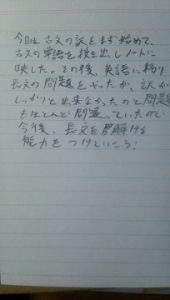 今日は古文の訳をまず始めて、
古文の単語を検き出しノートに
映した。その後、英語に移り
長文の問題をやったが、訳が
しっかりと出来なかったのと問題
もほとんど間違っていたので
今後、長文を読解ける
能力をつけていこう!